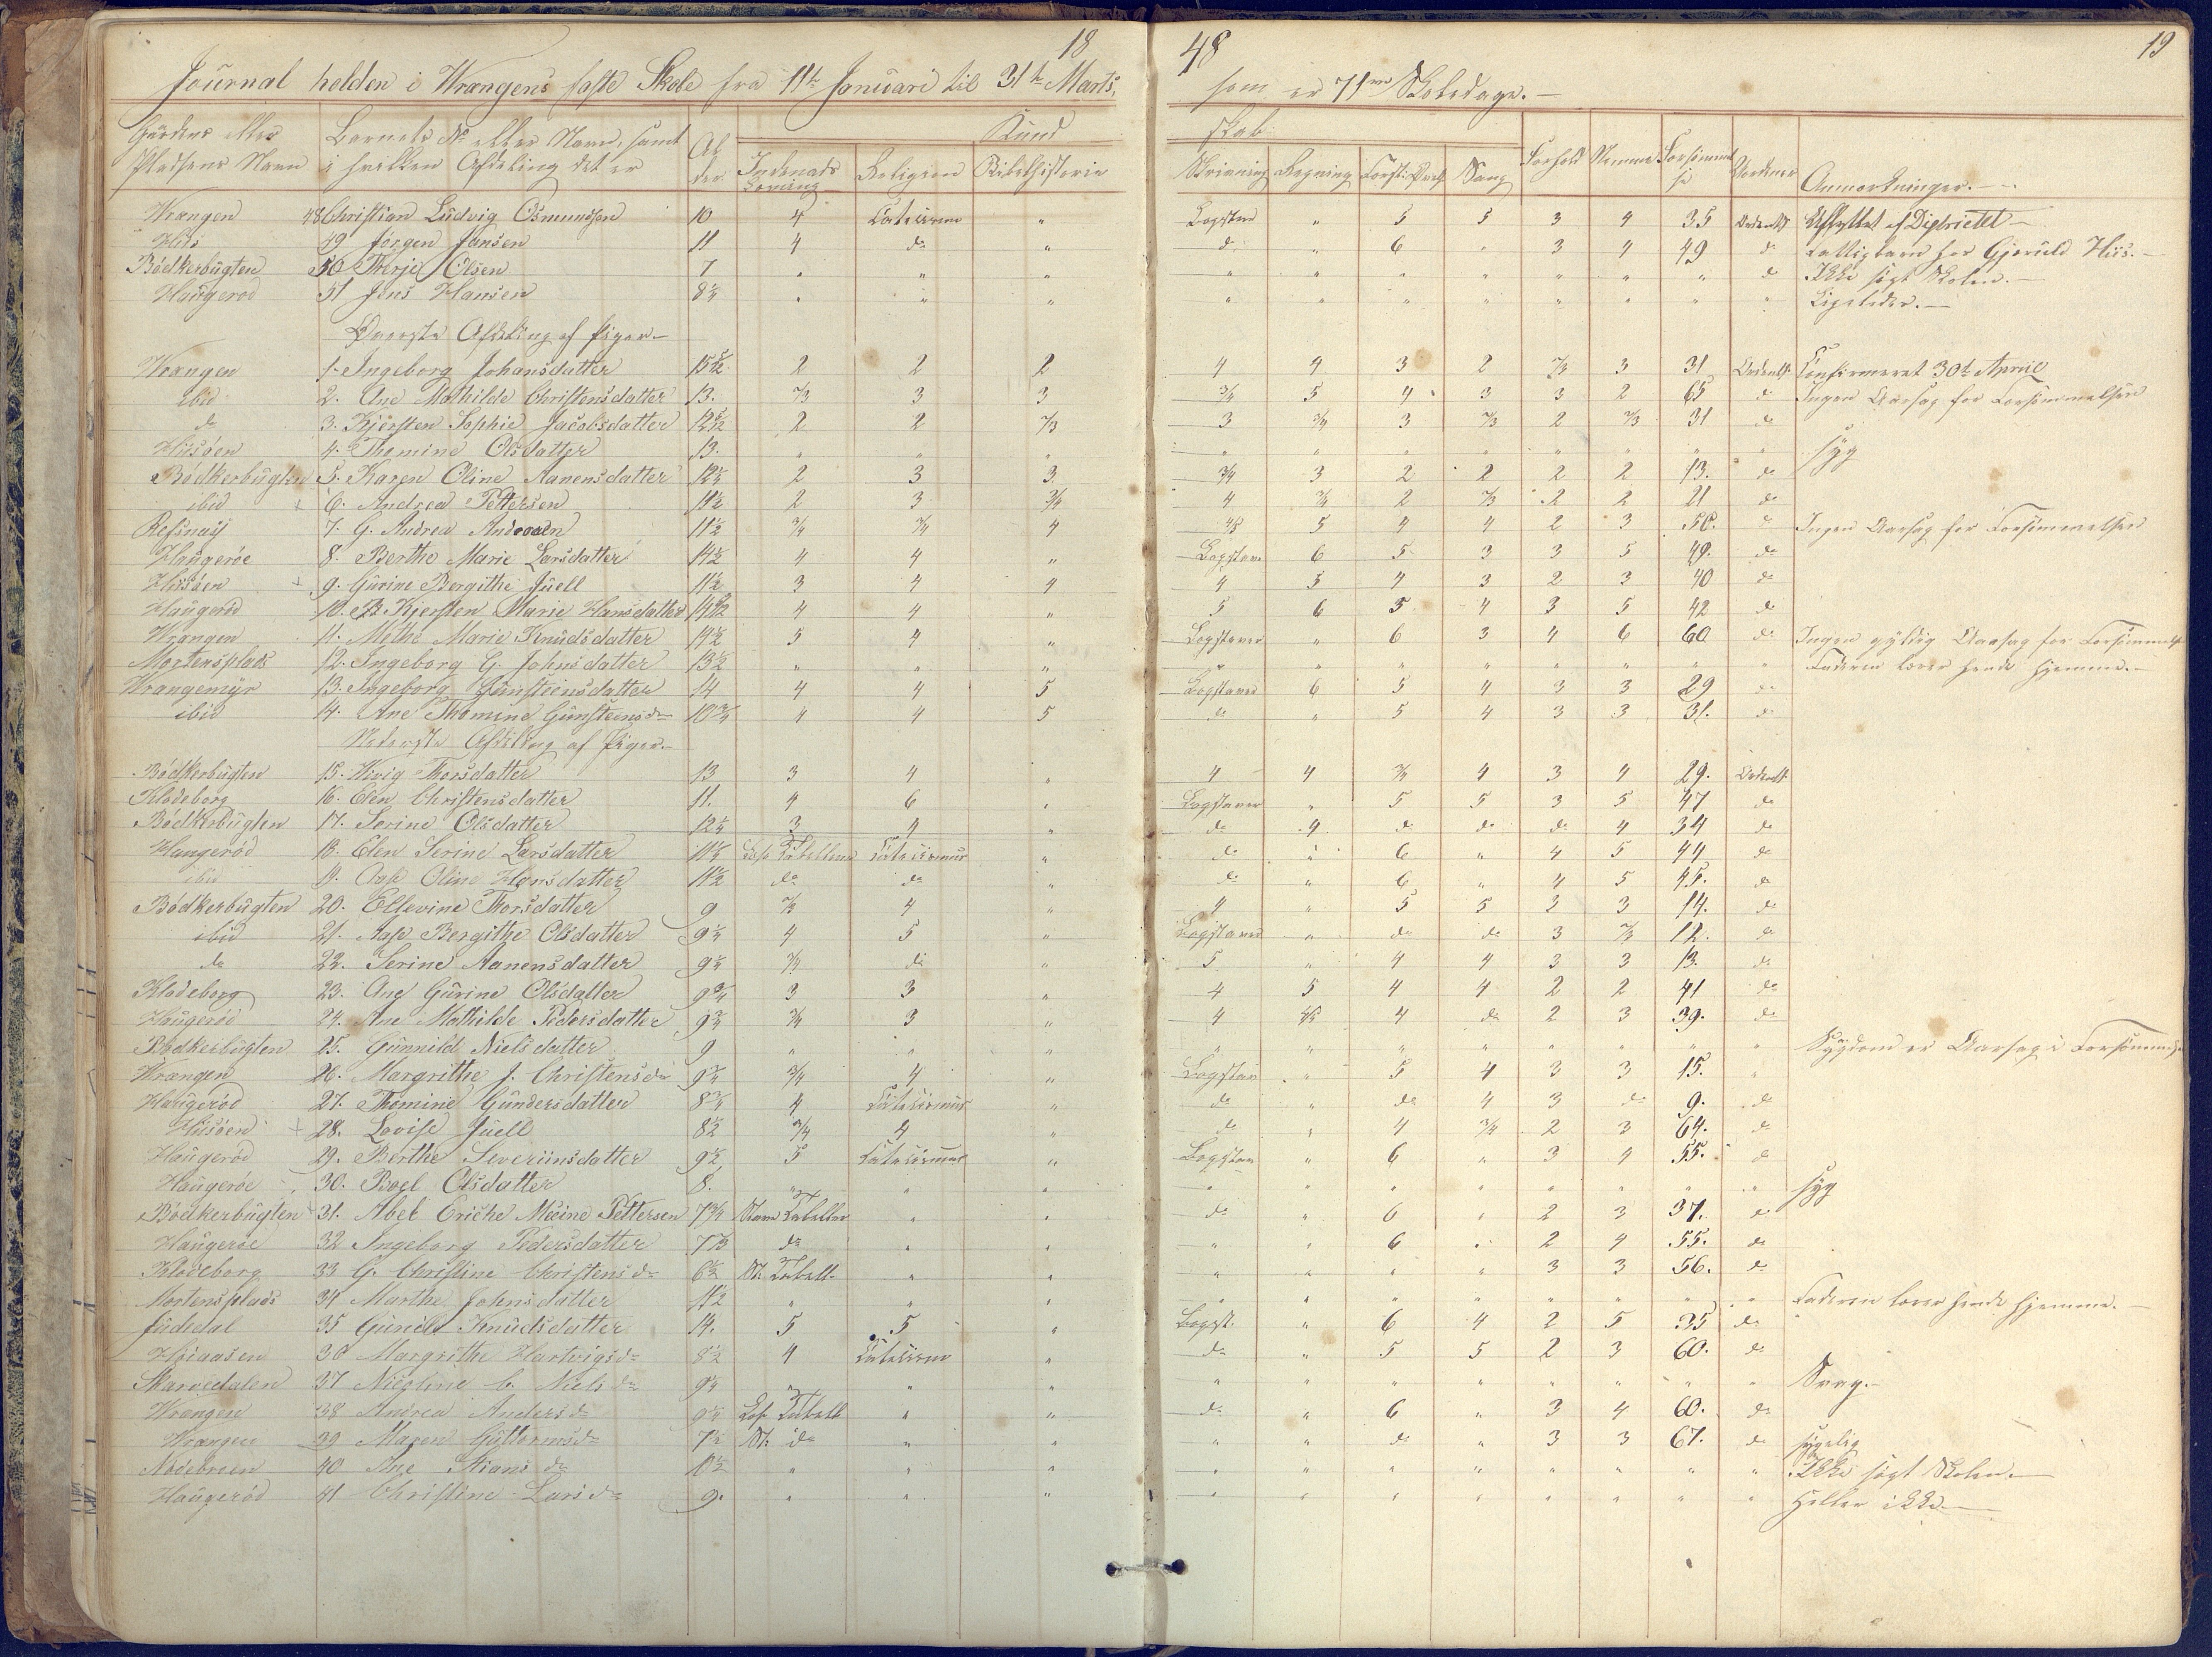 18 48 19
Journal holden i Wrangens faste Skole fra 11te Januari til 31te Marts, som er 71 Skoledage.
Gaardens eller Pladsens Navn | Barnets No eller Navn, samt i hvilken Afdeling det er | Alder | Kundskab | Forhold | Nemme | Forsömmelse | Anmærkninger.
Indenads Læsning | Religion | Bibelhistorie | Skrivning | Regning | Sang
Wrængen 48 Christian Ludvig Osmundsen 10 4 Catecismus " Bogstav " 5 5 3 4 35 Ordentl Udflyttet af Districtet
Hiis 49 Jörgen Jansen 11 4 do " do " 6 " 3 4 49 do Hiis.
Bödkerbugten 50 Therje Olsen 7 " " " " " " " " " " do Ikke sögt Skolen.
Haugeröd 51 Jens Hansen 8½ " " " " " " " " " " " Ligeledes.
Øverste Afdeling af Piger
Wrangen 1. Ingeborg Johansdatter 15 2 2 2 4 4 3 2 2/3 3 31 Ordentl Confirmeret 30te April
ibid 2. Ane Mathilde Christensdatter 13. 2/3 3 3 3/4 5 4 3 3 2 65 do Ingen Aarsag for Forsömmelsen
do 3. Kjersten Sophie Jacobsdatter 12 2 2 2/3 3 3/4 3 2/3 2 2/3 31 do
Hiisöen 4. Thomine Olsdatter 13. " " " " " " " " " " " syg
Bödkerbugten 5. Karen Oline Aanensdatter 12½ 2 3 3. 3/4 3 2 2 2 2 13. do
ibid + 6. Andrea Pettersen 11½ 2 3 3/4 4 3/4 2 2/3 2 2 21 do
7. G. Andrea 11½ 3/4 3/4 4 4/5 5 4 4 2 3 50. Ingen Aarsag for Forsömmelsen
Haugeröe 8. Berthe Marie Larsdatter 14½ 4 4 " Bogstav 6 5 3 3 5 49. do
Hiisöen + 9. Gurine Bergithe Juell 11½ 3 4 4 4 5 4 3 2 3 40 do
Haugeröd 10. Kjersten Marie Hansdatter 14 4 4 " 5 6 5 4 3 5 42 do
Wrangen 11. Methe Marie Knudsdatter 14½ 5 4 " Bogstaver " 6 3 4 6 60 do Ingen gyldig Aarsag for Forsömmelse
Mortensplads 12. Ingeborg G. Johnsdatter 13½ " " " " " " " " " " " Faderen lærer hende hjemme.
Wrangemyr 13. Ingeborg Gunsteensdatter 14 4 4 5 Bogstaver 6 5 4 3 3 29 do
ibid 14. Ane Thomine Gunsteensdr 10¾ 4 4 5 do " 5 4 3 3 31. do
Nederste Afdeling af Piger.
Bödkerbugten 15. Thorsdatter 13 3 4 " 4 4 3/4 4 3 4 29. Ordentl
Klodeborg 16. Elen Christensdatter 11. 4 6 " Bogstaver " 5 5 3 5 47 do
Bödkerbugten 17. Serine Olsdatter 12½ 3 4 " do 4 do do do 4 34 do
Haugeröd 18. Elen Serine Larsdatter 11½ Tabellen Catecismus " do " 6 " 4 5 44 do
ibid 19. Oline Hansdatter 11½ do do " do " 6 " 4 5 45. do
Bödkerbugten 20. Ellevine Thorsdatter 9 2/3 4 " 4 " 5 5 3 3 14. do
ibid 21. Aase Bergithe Olsdatter 9½ 4 5 " Bogstaver " do do 3 2/3 12. do
do 22. Serine Aanensdatter 9½ 3/4 do " 5 " 4 4 3 3 13. do
Klodeborg 23. Ane Gurine Olsdatter 9¾ 3 3 " 4 5 4 4 2 2 41 do
Haugeröd 24. Ane Mathilde Pedersdatter 9¾ 3/4 3 " 4 4/5 4 do 2 3 39. do
Bödkerbugten 25. Gunnild Nielsdatter 9 " " " " " " " " " " " Sygdom er Aarsag i Forsömmelse
Wrængen 26. Margrithe J. Christensdr 9¾ 3/4 4 " Bogstav " 5 4 3 3 15. "
Haugeröd 27. Thomine Gundersdatter 8¾ 4 Catecismus " do " do 4 3 do 9. do
Hiisöen + 28. Lovise Juell 8½ 3/4 4 " do " 4 3/4 2 3 64. do
Haugeröd 29. Berthe Severiinsdatter 9½ 5 Catecismus " Bogstav " 6 " 3 4 55. do
Haugeröe 30. Boel Olsdatter 8. " " " " " " " " " " " syg
Bödkerbugten 31. Abel Eriche Pettersen 7¾ Stave Tabellen " " do " 6 " 2 3 37. do
Haugeröe 32 Ingeborg Pedersdatter 7 do " " " " 6 " 2 4 55. do
Klodeborg 33 G. Christine Christensdr 6½ St. Tabell. " " " " " " 3 3 56. do
Mortensplads 34 Marthe Johnsdatter 11½ " " " " " " " " " " " Faderen lærer hende hjemme.
35 Gunild Knudsdatter 14. 5 5 " Bogst. " 6 4 2 5 35 do
36 Margrithe Hartvigsdr 8½ 4 Catecism " do " 5 5 2 3 60. do
Skarvedalen 37 C. Nielsdr 9½ " " " " " " " " " " " Svag.
Wrængen 38 Andrea Andersdr 9½ Tabell " " do " 6 " 3 4 60. do
Wrængen 39 Maren Guttormsdr 7½ St. do " " " " do " 3 3 67. do sygelig
Nödebroen 40 Ane dr " " " " " " " " " " " Ikke sögt Skolen.
Haugeröd 41 Christine Larsdr 9. " " " " " " " " " " " Heller ikke